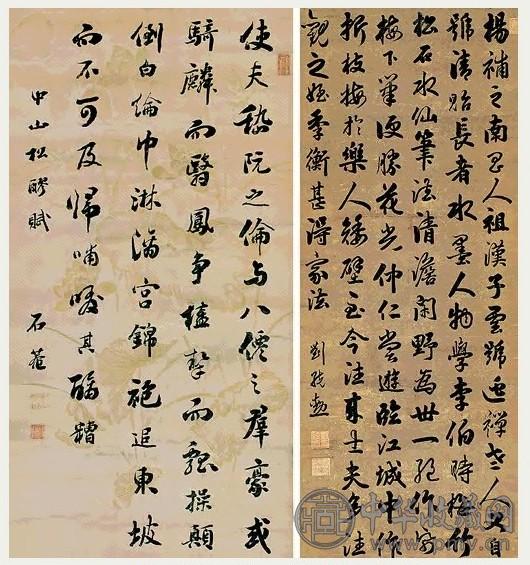 使夫嵇阮之倫與八僊之羣豪或
騎麟而翳鳳爭榼挈而瓢操顛
倒白綸巾淋漓宮錦袍追東坡
而不可及歸哺啜其醨糟
中山松醪賦
石菴
楊補之南昌人祖漢子雲號逃禪老人又自
號清夷長者水墨人物學李伯時梅竹
松石水仙筆法清澹閑野為世一絕作
梅下筆便勝花光仲仁嘗遊臨江城中作
折枝梅於樂人矮壁至今往來士夫多往
觀之姪季衡甚得家法
劉統勳
中华收藏网